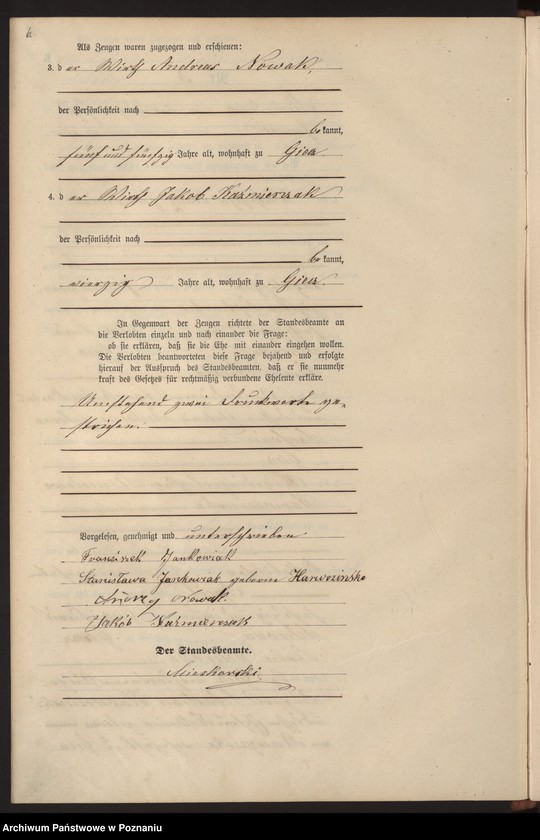 Als Zeugen waren zugezogen und erschienen:
3. d er Wirth Andreas Nowak,
der Persönlichkeit nach
bekannt,
fünf und fünfzig Jahre alt, wohnhaft zu Giecz
4. d er Wirth Jakob Kaźmierczak
der Persönlichkeit nach
bekannt,
vierzig Jahre alt, wohnhaft zu Giecz.
In Gegenwart der Zeugen richtete der Standesbeamte an
die Verlobten einzeln und nach einander die Frage:
ob sie erklären, daß sie die Ehe mit einander eingehen wollen.
Die Verlobten beantworteten diese Frage bejahend und erfolgte
hierauf der Ausspruch des Standesbeamten, daß er sie nunmehr
kraft des Gesetzes für rechtmäßig verbundene Eheleute erkläre.
Umstehend zwei Druckworte ge-
strichen.
Vorgelesen, genehmigt und unterschrieben
Franciszek Jankowiak
Stanisława Jankowiak geborne
Andrzej Nowak.
Jakób Kaźmierczak
Der Standesbeamte.
Archiwum Państwowe w Poznaniu